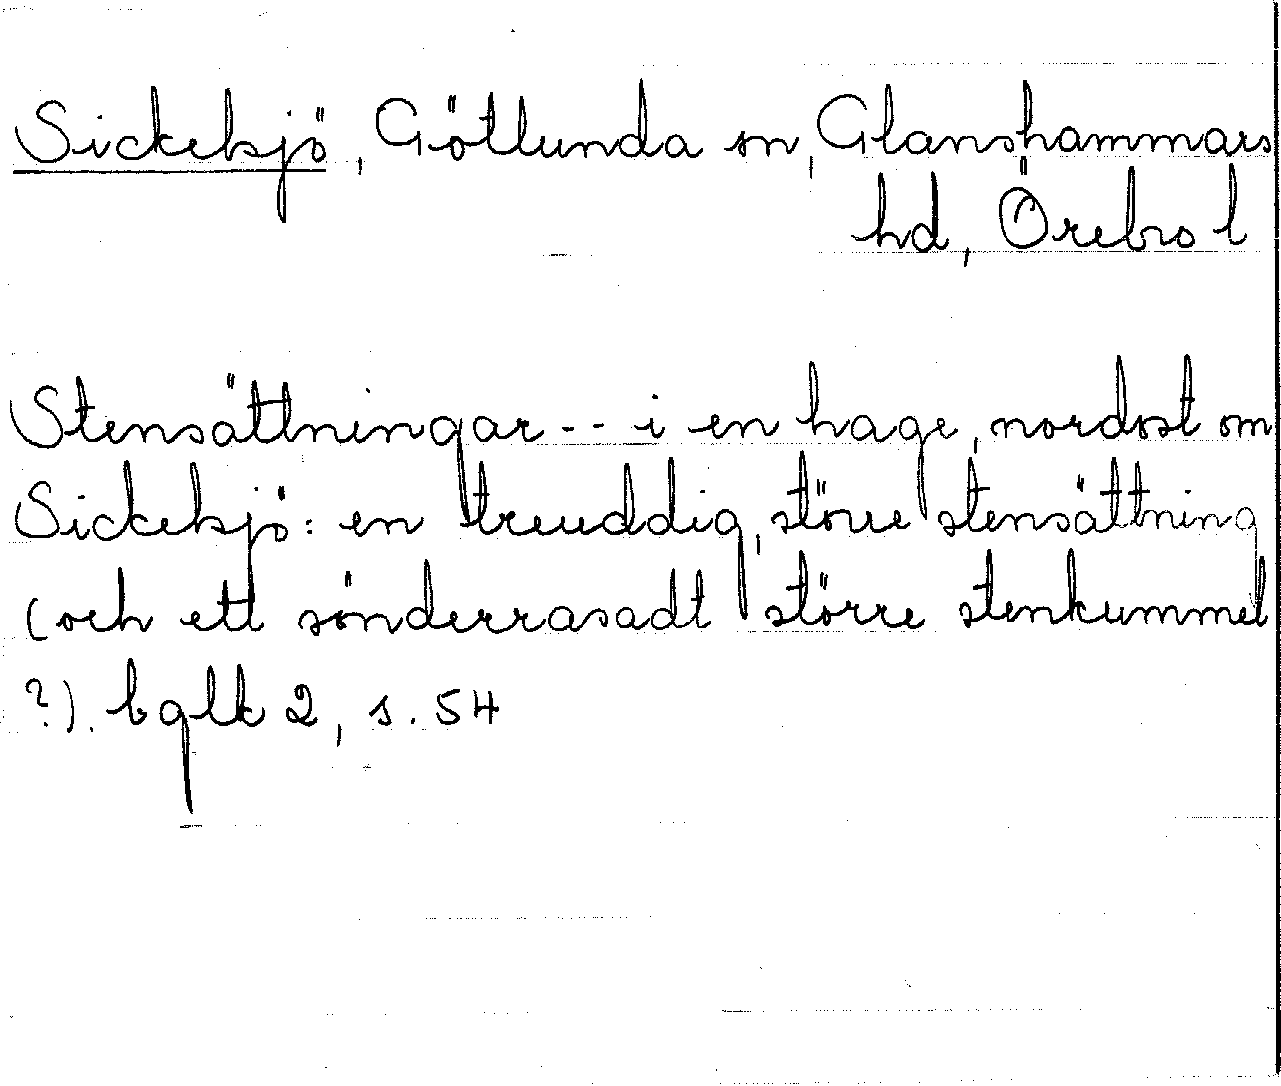 Sickelsjö, Götlunda sn, Glanshammars
hd, Örebro l
Stensättningar -- i en hage, nordost om
Sickelsjö: en treuddig, större stensättning
(och ett sönderrasadt större stenkummel
?). bglk 2, s. 54